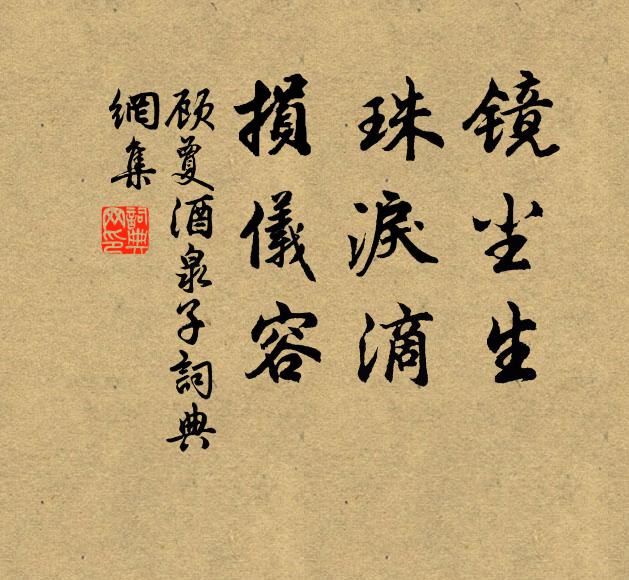 镜尘生
珠淚滴
損儀容
顾敻酒泉子詞典
網集
詞典
网印